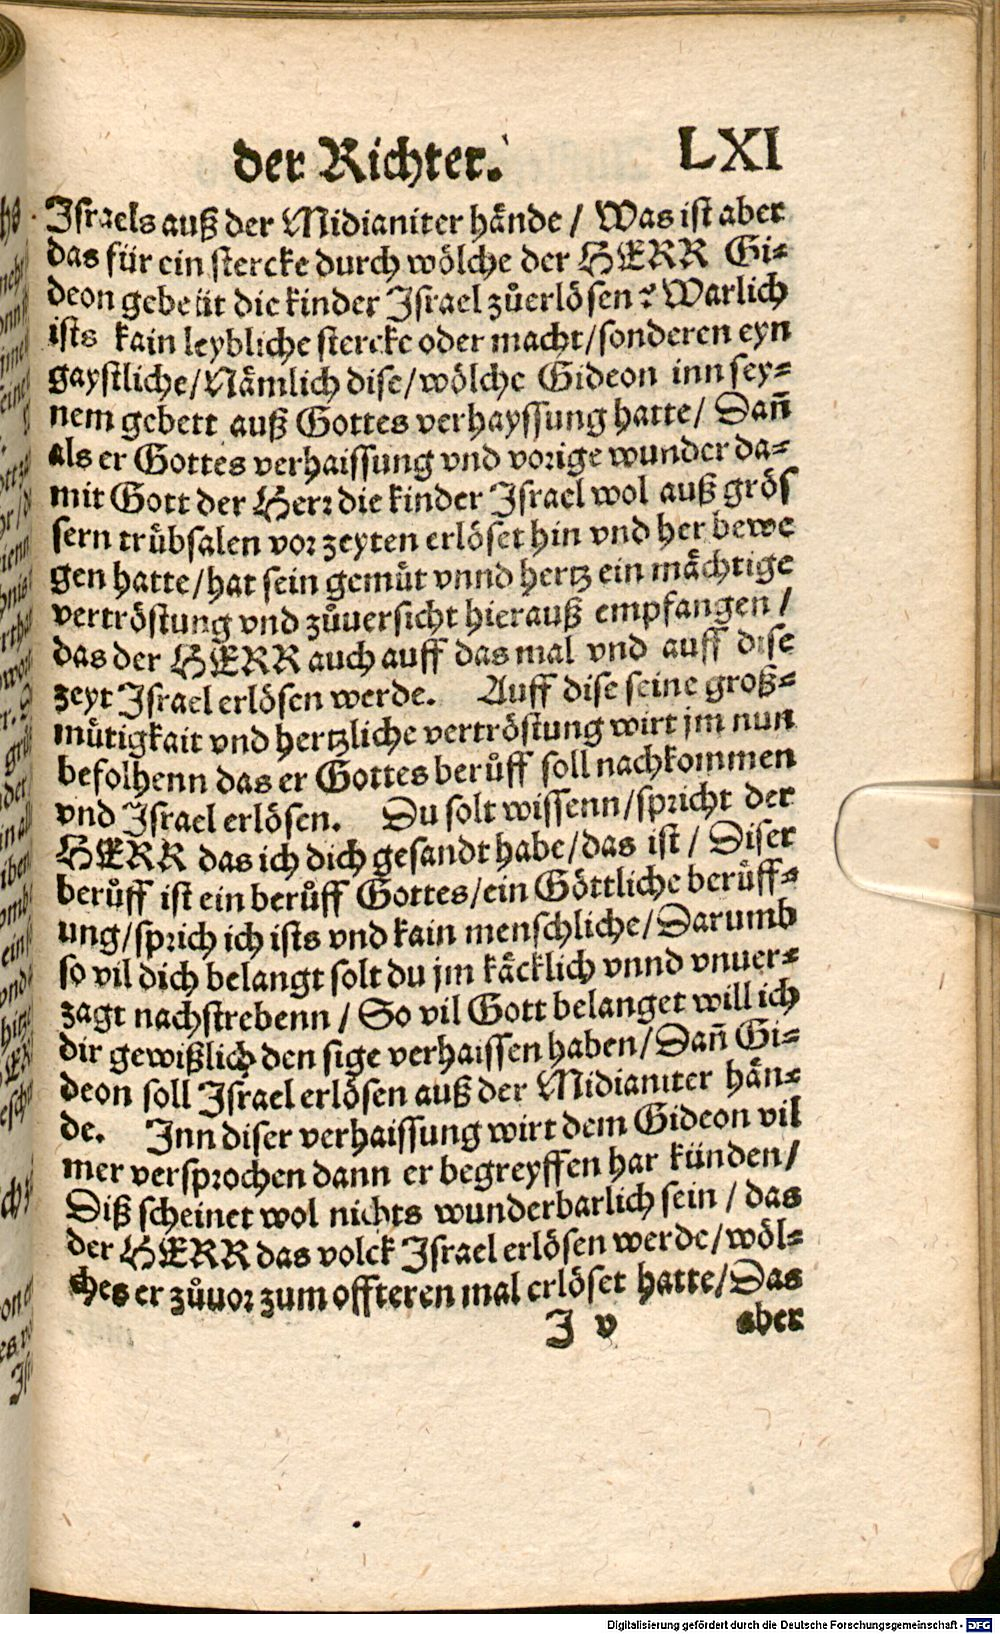 der Richter. LXI
Israels auß der Midianiter hände / Was ist aber
das für ein stercke durch wölche der HERR Gi-
deon gebeüt die kinder Israel zůerlösen? Warlich
ists kain leybliche stercke oder macht/sonderen eyn
gaystliche/Nämlich dise/wölche Gideon inn sey-
nem gebett auß Gottes verhayssung hatte/ Dañ
als er Gottes verhaissung vnd vorige wunder da-
mit Gott der Herr die kinder Israel wol auß grös
sern trübsalen vor zeyten erlöset hin vnd her bewe
gen hatte/hat sein gemüt vnnd hertz ein mächtige
vertröstung vnd zůuersicht hierauß empfangen /
das der HERR auch auff das mal vnd auff dise
zeyt Israel erlösen werde. Auff dise seine groß-
mütigkait vnd hertzliche vertröstung wirt jm nun
befolhenn das er Gottes berůff soll nachkommen
vnd Israel erlösen. Du solt wissenn/spricht der
HERR das ich dich gesandt habe/das ist / Diser
berůff ist ein berůff Gottes/ein Göttliche berüff-
ung/sprich ich ists vnd kain menschliche/Darumb
so vil dich belangt solt du jm käcklich vnnd vnuer-
zagt nachstrebenn / So vil Gott belanget will ich
dir gewißlich den sige verhaissen haben/Dañ Gi-
deon soll Israel erlösen auß der Midianiter hän-
de. Inn diser verhaissung wirt dem Gideon vil
mer versprochen dann er begreyffen har künden/
Diß scheinet wol nichts wunderbarlich sein / das
der HERR das volck Israel erlösen werde/wöl-
ches er zůuor zum offteren mal erlöset hatte/Das
J v aber
Digitalisierung gefördert durch die Deutsche Forschungsgemeinschaft - DFG